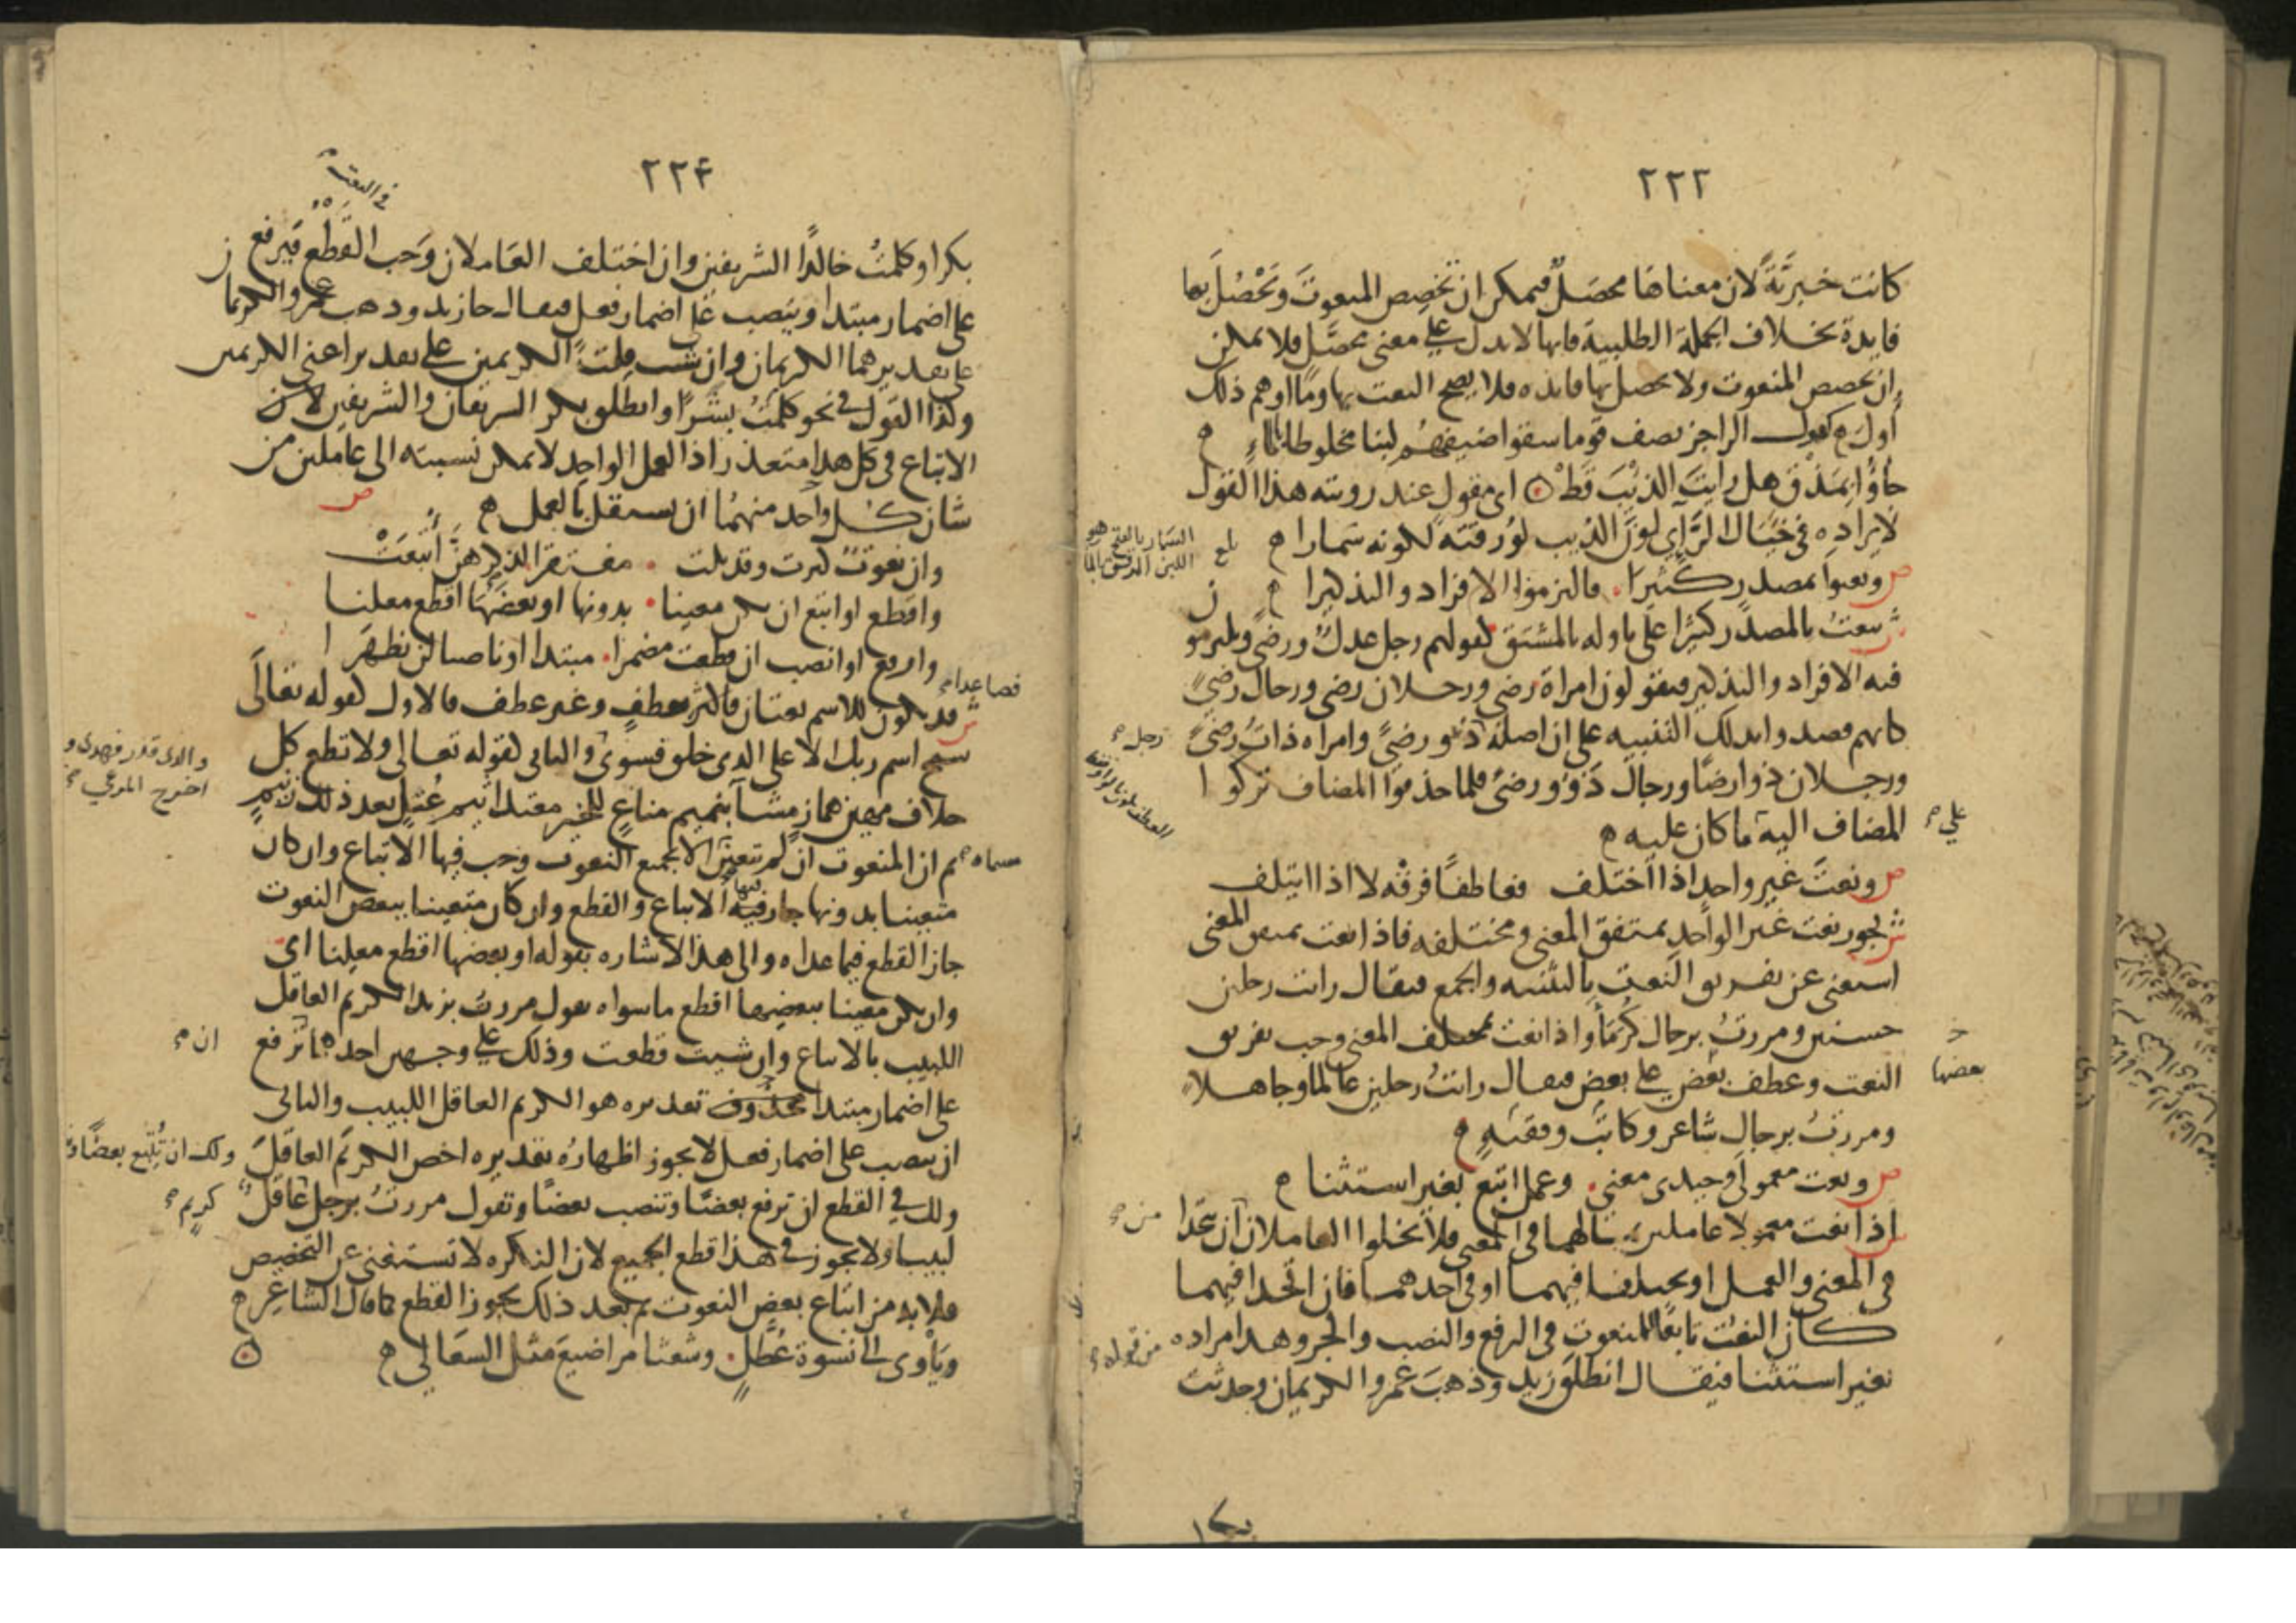 ٢٢٣
كانت خبريّة لان معناها محصل فيمكن ان تخصص المنعوت وتحصل بها
فايدة بخلاف الجملة الطلبية فانها لا تدل على معنى محصّل فلا يمكن
ان تخصص المنعوت ولا يحصل بها فايده فلا يصح النعت بها وما اوهم ذلك
أول كقول الراجز يصف قوما سقوا ضيفهم لبنا مخلوطا بالماء
جاؤا بمذق هل رايت الذيب قط اى مقول عند رويته هذا القول
لايراده فى خيال الرآى لون الذيب لورقته لكونه سمارا
السمار بالفتح هو
اللبن الرقيق بالماء
بلغ
ص ونعتوا بمصدر كثيرا فالتزموا الافراد والتذكيرا
ش ينعت بالمصدر كثيرا على تاوله بالمشتق كقولهم رجل عدل ورضى ويلتزمو ن
فيه الافراد والتذكير فيقولون امراة رضى ورجلان رضى ورجال رضى
كانهم قصدوا بذلك التنبيه على ان اصله ذو رضى وامراه ذات رضى
رجل
ورجلان ذوا رضا ورجال ذوو رضى فلما حذفوا المضاف تركوا
المضاف اليه ما كان عليه
على
ص ونعت غير واحد اذا اختلف فعاطفا فرقه لا اذا ايتلف
ش يجوز نعت غير الواحد بمتفق المعنى ومختلفه فاذا نعت بمتفق المعنى
استغنى عن تفريق النعت بالتثنيه والجمع فيقال رايت رجلين
حسنين ومررت برجال كرما واذا نعت بمختلف المعنى وجب تفريق
النعت وعطف بعض على بعض فيقال رايت رجلين عالما وجاهلا
خ
بعضها
ومررت برجال شاعر وكاتب وفقيه
ص ونعت معمولى وحيدى معنى وعمل اتبع بغير استثنا
ش اذا نعت معمولا عاملين بمالهما فى المعنى فلا يخلوا العاملان ان يتحدا
من
فى المعنى والعمل او يختلفا فيهما او فى احدهما فان اتحدا فيهما
كان النعت تابعا للمنعوت فى الرفع والنصب والجر وهذا مراده
من قوله
بغير استثنا فيقال انطلق زيد وذهب عمرو الكريمان وحدثت
بكرا
٢٢٤
فى النعت
بكرا وكلمت خالدا الشريفين وان اختلف العاملان وجب القطع فيرفع
على اضمار مبتدا وينصب على اضمار فعل فيقال جا زيد وذهب عمرو الكريما ن
على تقدير هما الكريمان وان شئت قلت الكريمين على تقدير اعنى الكريمين
وكذا القول فى نحو كلمت بشرا وانطلق بكر الشريفان والشريفين لان
الاتباع فى كل هذا متعذر اذ العمل الواحد لا يمكن نسبته الى عاملين من
شان كل واحد منهما ان يستقل بالعمل
ص
وان نعوت كثرت وقد تلت مفتقرا لذكرهن أتبعت
واقطع او اتبع ان يكن معينا بدونها او بعضها اقطع معلنا
وارفع او انصب ان قطعت مضمرا مبتدا او ناصبا لن يظهرا
فصاعدا
ش قد يكون للاسم نعتان فاكثر بعطف وغير عطف فالاول كقوله تعالى
سبح اسم ربك الاعلى الذى خلق فسوى والثانى كقوله تعالى ولا تطع كل
والذى قدر فهدى و
اخرج المرعى
حلاف مهين هماز مشاء بنميم مناع للخير معتد اثيم عتل بعد ذلك زنيم
ثم ان المنعوت ان لم يتعين الا بجميع النعوت وجب فيها الاتباع وان كان
متعينا بدونها جاز فيه فيها الاتباع والقطع وان كان متعينا ببعض النعوت
جاز القطع فيما عداه والى هذا الاشاره بقوله او بعضها اقطع معلنا اى
وان يكن معينا ببعضها اقطع ما سواه تقول مررت بزيد الكريم العاقل
اللبيب بالاتباع وان شيت قطعت وذلك على وجهين احدهما ترفع
ان
على اضمار مبتدا محذوف تقديره هو الكريم العاقل اللبيب والثانى
ان تنصب على اضمار فعل لا يجوز اظهاره تقديره اخص الكريم العاقل
ولك ان تتبع بعضا
ولك فى القطع ان ترفع بعضا وتنصب بعضا وتقول مررت برجل عاقل
كريم
لبيبا ولا يجوز فى هذا قطع الجميع لان النكره لا تستغنى عن التخصيص
فلا بد من اتباع بعض النعوت ثم بعد ذلك يجوز القطع كما قال الشاعر
وياوى الى نسوة عطل وشعثا مراضيع مثل السعالي